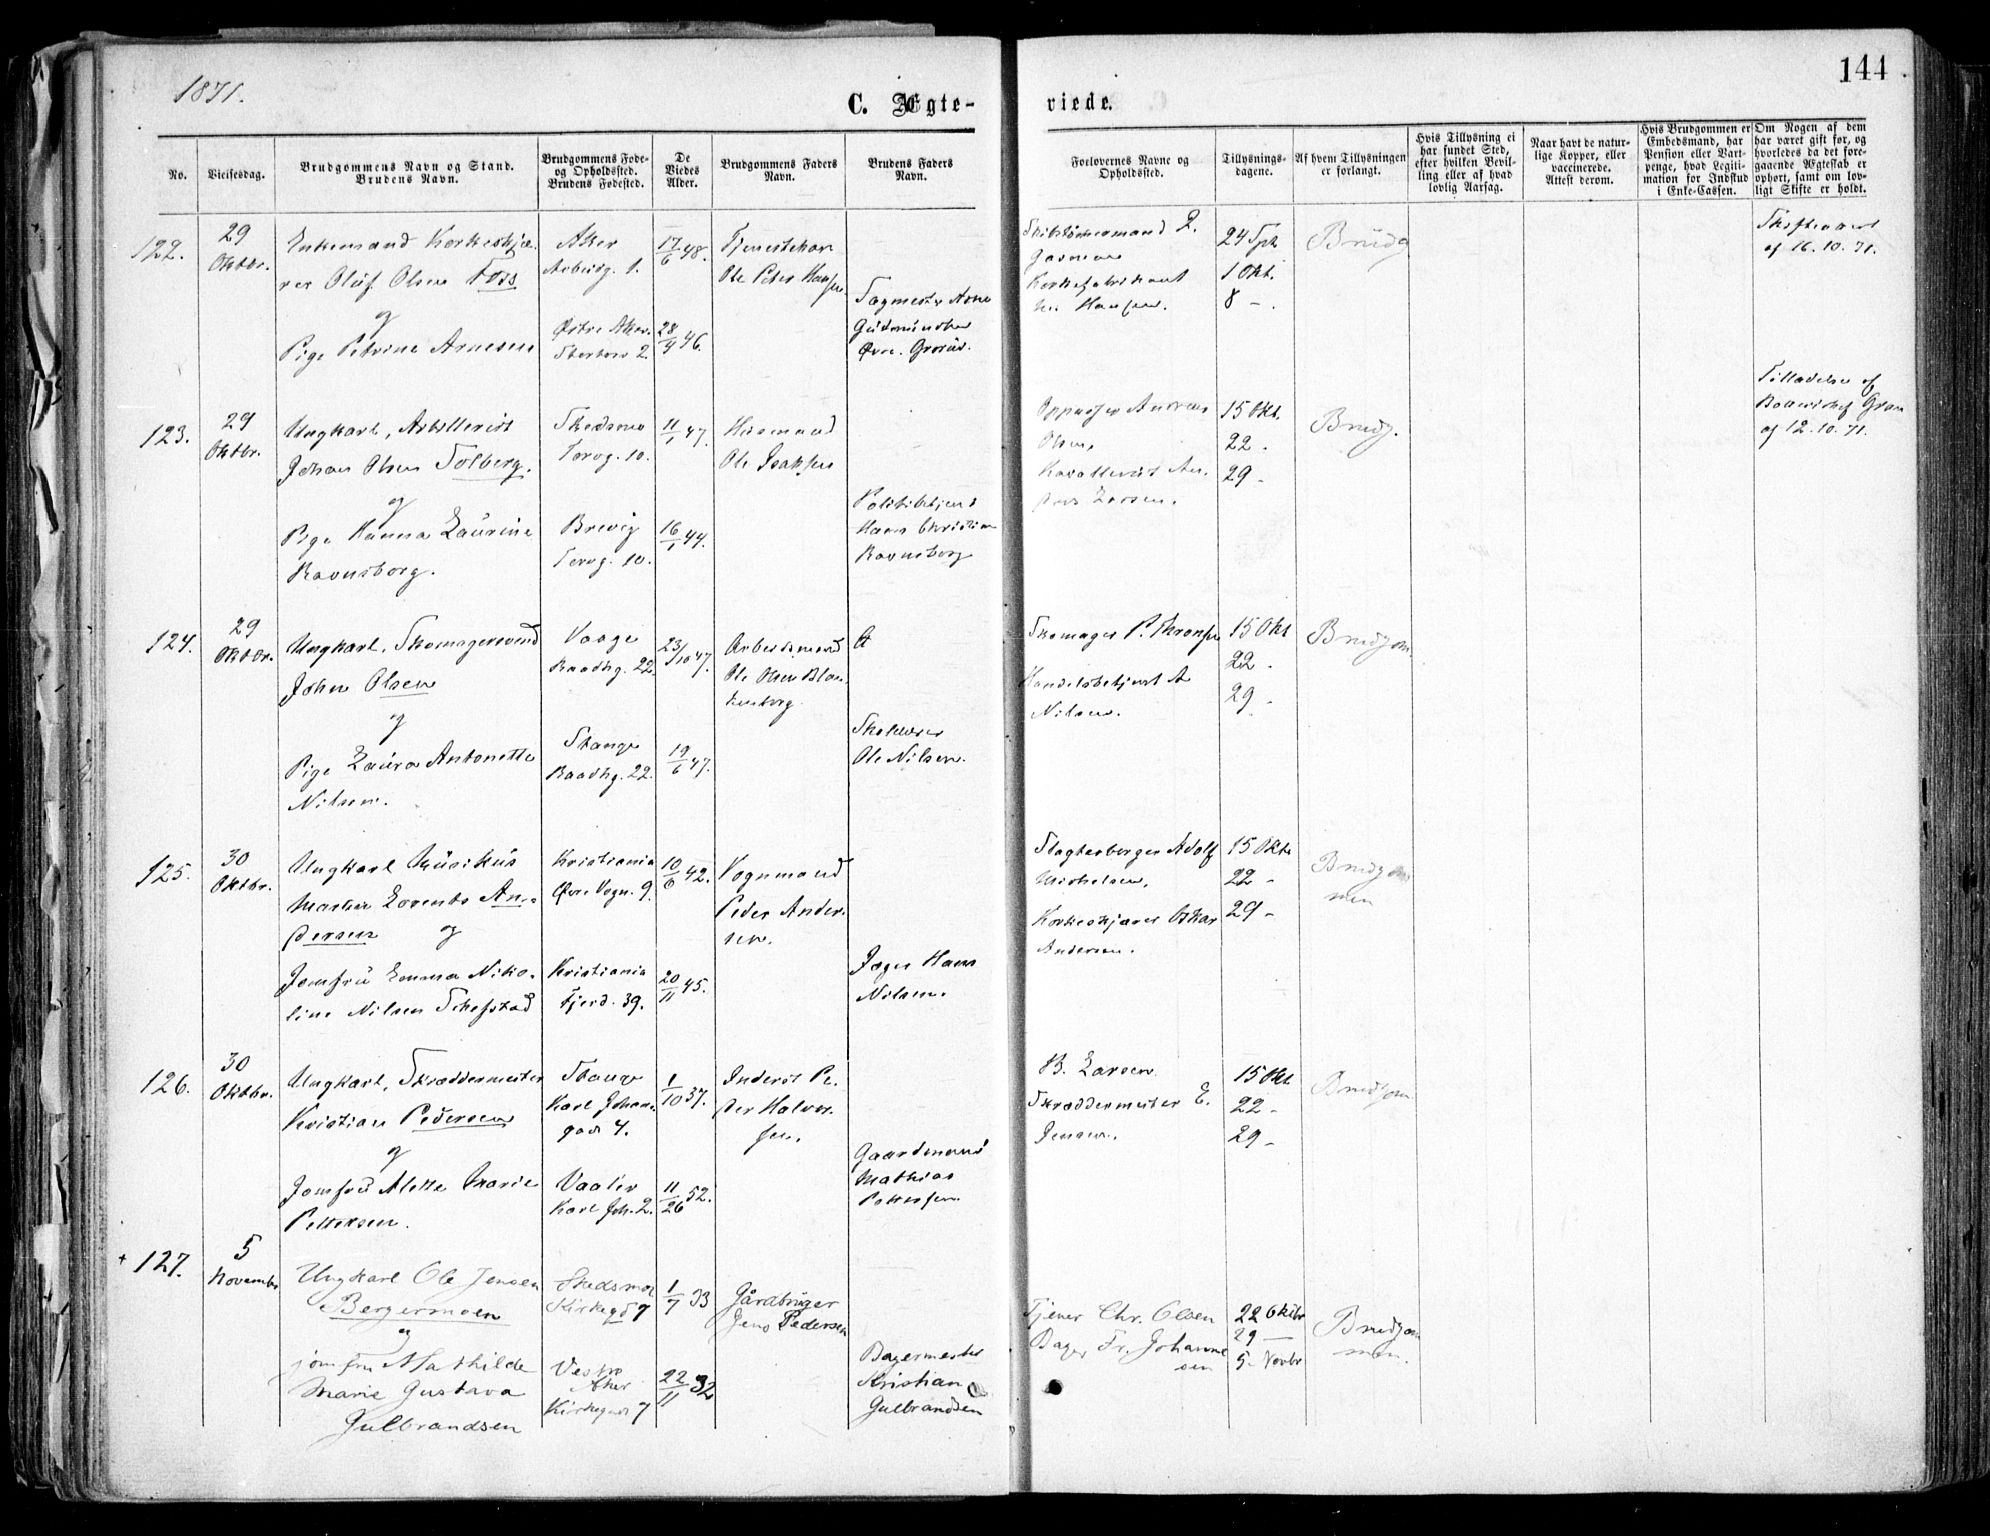 1871.
144
C. Ægte-
viede.
No.
Vielsesdag.
Brudgommens Navn og Stand.
Brudens Navn.
Brudgommens Føde-
og Opholdssted.
Brudens Fødested.
De
Viedes
Alder.
Brudgommens Faders
Navn.
Brudens Faders
Navn.
Forlovernes Navne og
Opholdssted.
Tillysnings-
dagene.
Af hvem Tillysningen
er forlangt.
Hvis Tillysning ei
har fundet Sted,
efter hvilken Bevil-
ling eller af hvad
lovlig Aarsag.
Naar havt de natur-
lige Kopper, eller
vaccinerede.
Attest derom.
Hvis Brudgommen er
Embedsmand, har
Pension eller Vart-
penge, hvad Legiti-
mation for Indskud
i Enke-Cassen.
Om Nogen af dem
har været gift før, og
hvorledes da det fore-
gaaende Ægteskab er
ophørt, samt om lov-
ligt Skifte er holdt.
122.
29
Oktbr.
Enkemand Korkeskjæ-
rer Oluf Olsen Foss
og
Pige Petrine Arnesen
Aker
Aabergg. 1.
Østre Aker
Storthorv 2.
17/6 48.
28/9 46.
Tjenestekar
Ole Peter Hansen
Sagmester Arne
Gudmundsen
Øvre Grorud.
Skibstømmermand P.
Korkefabrikant
Hansen.
24 Spt.
1 Okt.
8 -.
Brudg
Skifteattest
af 16.10.71.
123.
29
Oktbr.
Ungkarl, Artillerist
Johan Olsen Solberg.
og
Pige Hanna Laurine
Ravnsborg.
Skedsmo
Torvg. 10.
Brevig
Torvg. 10.
11/1 47.
16/1 44.
Husmand
Ole Isaksen
Politibetjent
Hans Christian
Ravnsborg
Oppasser Andreas
Olsen,
Kavallerist An-
ders Larsen.
15 Okt.
22 -
29 -
Brudg.
Tilladelse af
Batterichef Gran
af 12.10.71.
124.
29
Oktbr.
Ungkarl, Skomagersvend
Johan Olsen
og
Pige Laura Antonette
Nilsen.
Vaage
Raadhg. 22.
Stange
Raadhg. 22.
23/10 47.
19/6 47.
Arbeidsmand
Ole Olsen Blan-
kenborg.
Skolelærer
Ole Nilsen.
Skomager P. Thronsen
Handelsbetjent A
Nilsen.
15 Okt
22 -
29 -
Brudgom.
125.
30
Oktbr.
Ungkarl Musikus
Martin Lorents An-
dersen og
Jomfru Emma Niko-
line Nilsen Schefstad
Kristiania
Øvre Vogn. 9.
Kristiania
Fjerd. 39.
10/6 42.
20/11 45.
Vognmand
Peder Ander-
sen.
Jæger Hans
Nilsen.
Slagterborger Adolf
Michelsen,
Korkeskjærer Oskar
Andersen.
15 Okt.
22 -
29 -
Brudgom
men
126.
30
Oktbr.
Ungkarl, Skræddermester
Kristian Pedersen
og
Jomfru Alette Marie
Pettersen.
Stange
Karl Johans
gade 4.
Vaaler
Karl Joh. 2.
1/10 37.
11/26 52.
Inderst Pe-
der Halvor-
sen.
Gaardmand
Mathias
Pettersen.
B. Larsen
Skræddermester E.
Jensen.
15 Okt.
22 -
29 -
Brudgom
127.
5
Novembr
Ungkarl Ole Jensen
Bergermoen
og
jomfru Mathilde
Marie Gustava
Gulbrandsen
Skedsmo
Kirkegd 7
Vestre
Aker
Kirkegad 7
1/7 33
22/11 32
Gårdbruger
Jens Pedersen
Bagermester
Kristian
Gulbrandsen
Tjener Chr. Olsen
Bager Fr. Johanne
sen
22 Oktbr
29 —
5 - Novbr
Brudgom
men.